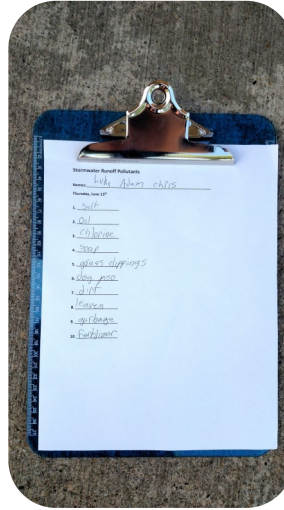 Stormwater Runoff Pollutants
Names: Luke Adam chris
Thursday, June 13th
1. Salt
2. Oil
3. Chlorine
4. Soap
5. grass clippings
6. Dog poo
7. dirt
8. leaves
9. garbage
10. Fertilizer